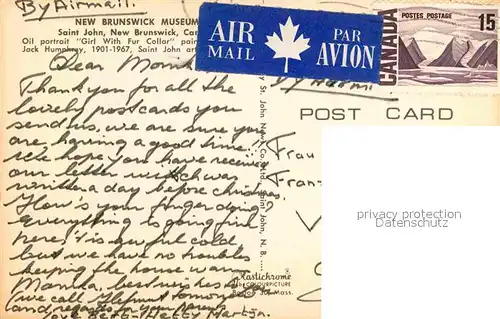 By Airmail.
NEW BRUNSWICK MUSEUM
Saint John, New Brunswick, Can
Oil portrait "Girl With Fur Collar" pain
Jack Humphrey, 1901-1967, Saint John art
AIR MAIL PAR AVION
CANADA POSTES POSTAGE 15
POST CARD
Dear Monik
Thank you for all the
lovely postcards you
send us, we are sure you
are having a good time!!
We hope you have received
our letter which was
written a day before christmas.
How's your finger doing?
everything is going fine
here, it is awful cold
but we have no troubles
keeping the house warm
Monika, best wishes
(we call
and regards to your parents
love Hetty Martijn.
Frau
Fran
by St. John News Co. Ltd., Saint John, N. B.
Plastichrome
COLOURPICTURE
Boston Mass.
privacy protection
Datenschutz